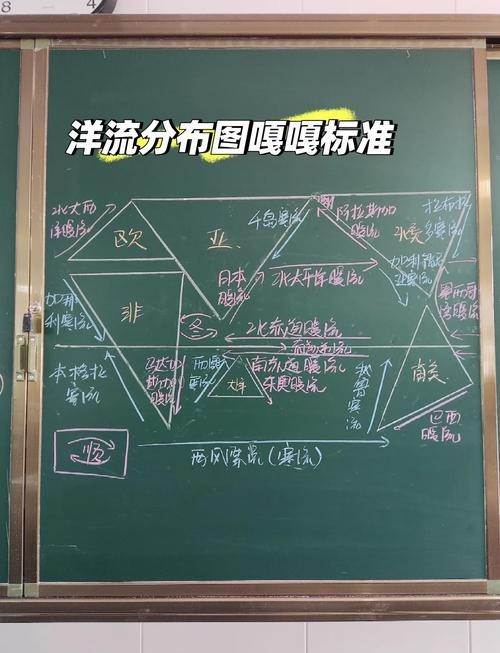 洋流分布图嘎嘎标准
北大西
洋暖流
欧
亚
千岛寒流
阿拉斯加
暖流
北美
拉布拉
多寒流
加利福尼
亚寒流
墨西哥
湾暖流
日本
暖流
北太平洋暖流
加那
利寒流
非
冬
北赤道暖流
赤道逆流
南赤道暖流
本格拉
寒流
马达加
斯加
暖流
西澳
寒流
大洋
东澳暖流
秘鲁寒流
南美
巴西
暖流
顺
西风漂流(寒流)